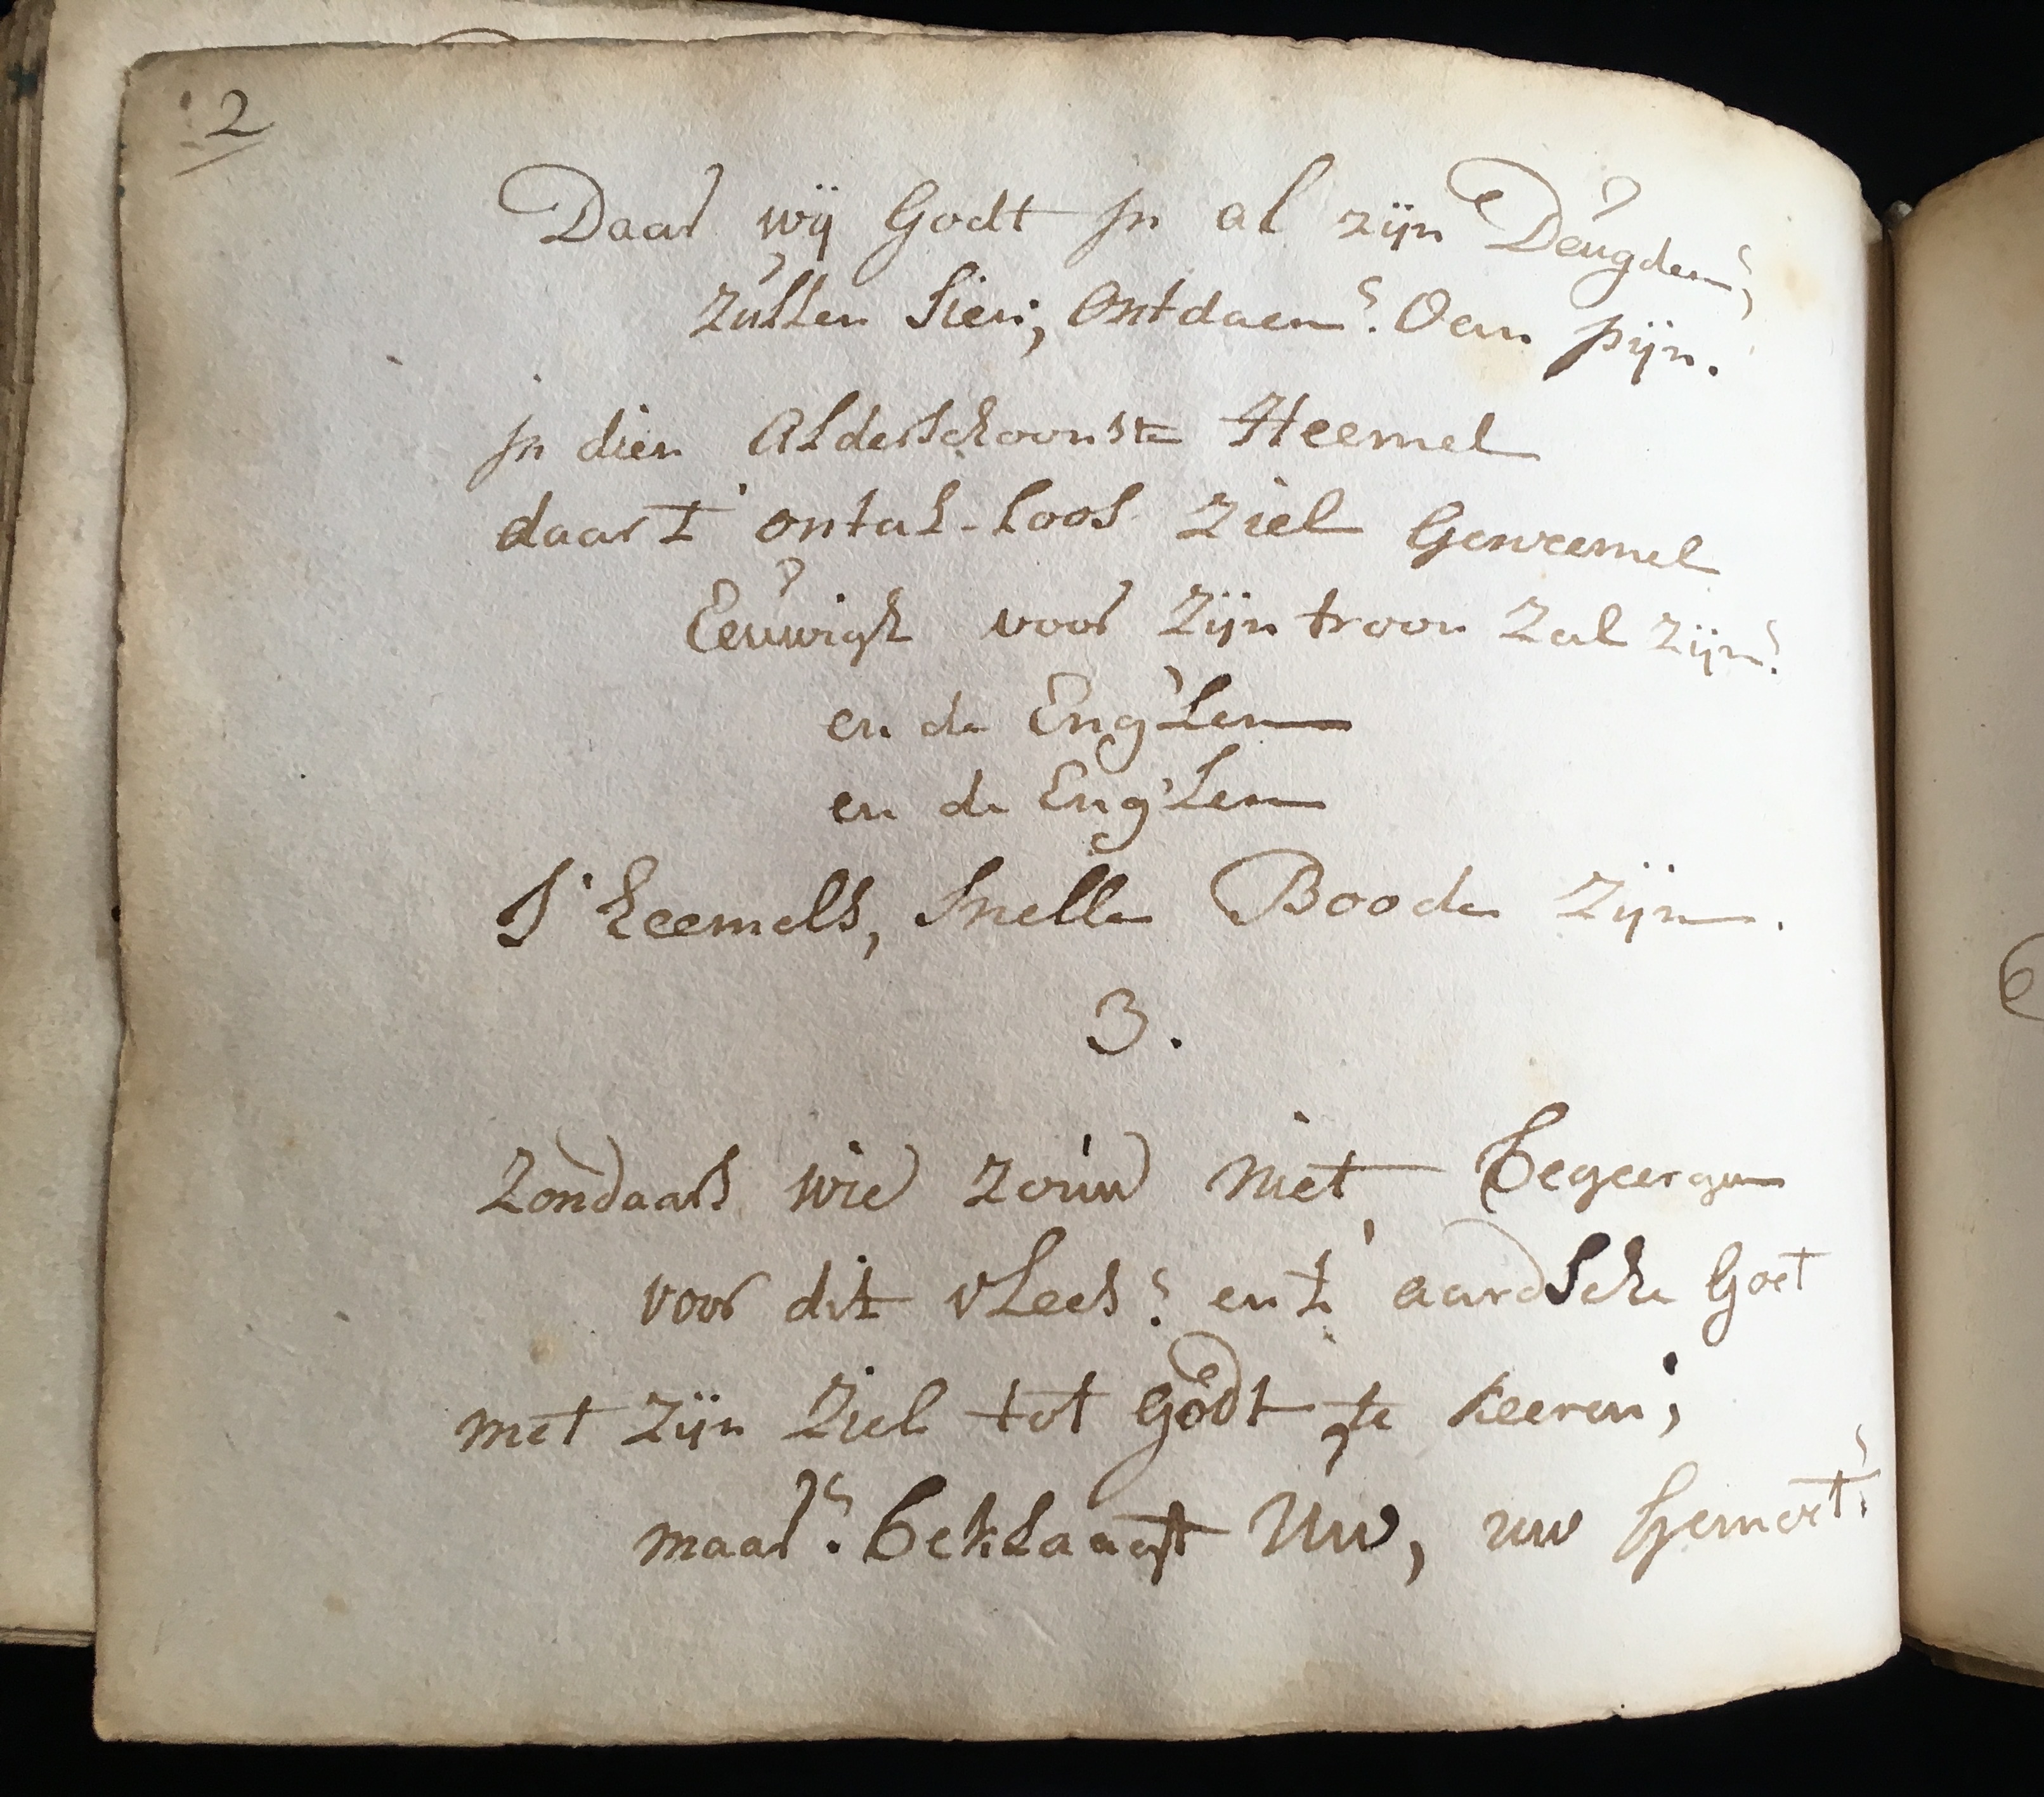 2
Daar wij Godt in al zijn Deugden,
zullen sien, ontdaen? Van pijn.
in dien alderschoonste Heemel
daar t' ontal-loos ziel Geweemel
Eeuwigh voor zijn troon zal zijn?
en de Eng'len
en de Eng'len
S' heemels, snelle Boode zijn.
3.
Zondaars wie zouw niet begeeren
voor dit vlees? en t' aardsche Goet
met zijn ziel tot Godt te keeren;
maar? beklaagt Uw, uw Gemoet?